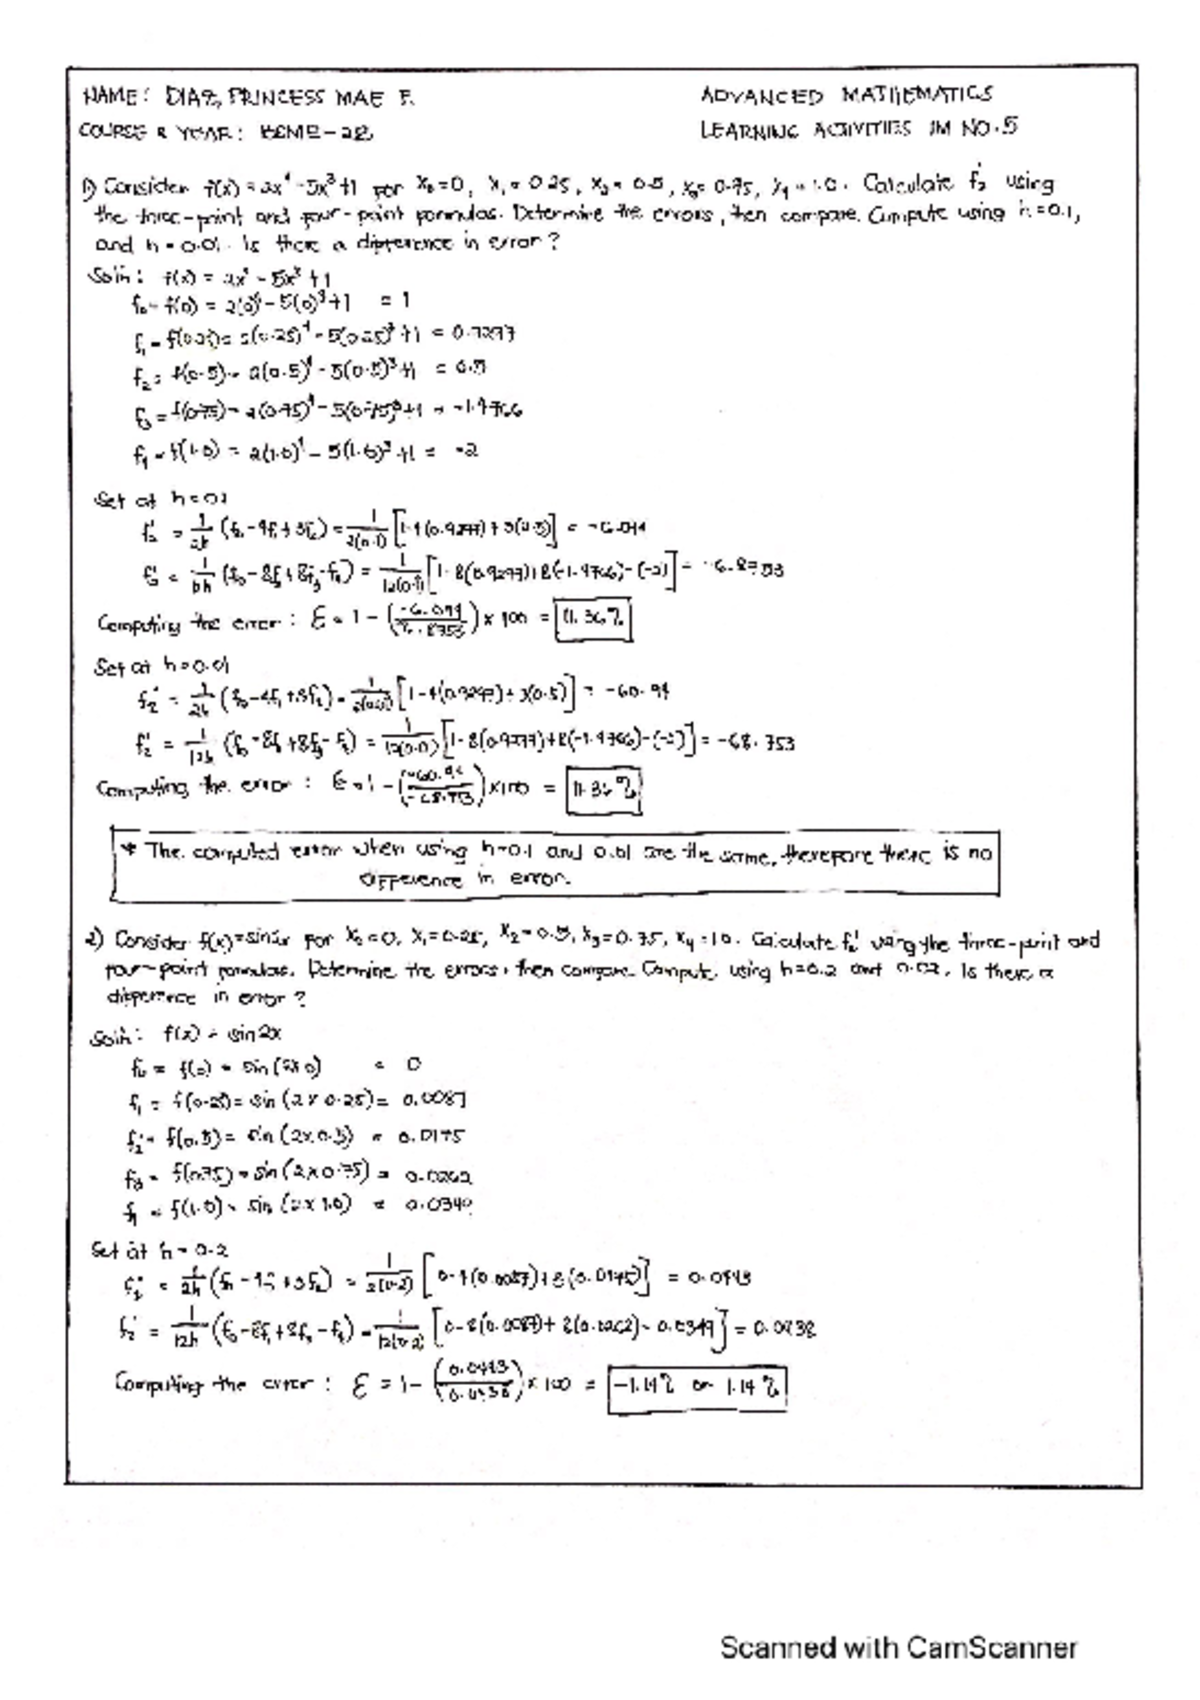 NAME: DIAZ, PRINCESS MAE F.
ADVANCED MATHEMATICS
COURSE & YEAR: BSME-2B
LEARNING ACTIVITIES IM NO.5
1) Consider f(x) = 2x⁴ - 5x³ + 1 for x₀ = 0, x₁ = 0.25, x₂ = 0.5, x₃ = 0.75, x₄ = 1.0. Calculate f₂' using
the three-point and four-point formulas. Determine the errors, then compare. Compute using h = 0.1,
and h = 0.01. Is there a difference in error?
Sol'n: f(x) = 2x⁴ - 5x³ + 1
f₀ = f(0) = 2(0)⁴ - 5(0)³ + 1 = 1
f₁ = f(0.25) = 2(0.25)⁴ - 5(0.25)³ + 1 = 0.9297
f₂ = f(0.5) = 2(0.5)⁴ - 5(0.5)³ + 1 = 0.5
f₃ = f(0.75) = 2(0.75)⁴ - 5(0.75)³ + 1 = -1.4766
f₄ = f(1.0) = 2(1.0)⁴ - 5(1.0)³ + 1 = -2
Set at h = 0.1
f₂' = 1/2h (f₀ - 4f₁ + 3f₂) = 1/2(0.1) [1 - 4(0.9297) + 3(0.5)] = -6.094
= 1/12h (f₀ - 8f₁ + 8f₃ - f₄) = 1/12(0.1) [1 - 8(0.9297) + 8(-1.4766) - (-2)] = -6.8753
Computing the error: ε = 1 - (-6.094/-6.8753) x 100 = 11.36%
Set at h = 0.01
f₂' = 1/2h (f₀ - 4f₁ + 3f₂) = 1/2(0.01) [1 - 4(0.9297) + 3(0.5)] = -60.94
f₂' = 1/12h (f₀ - 8f₁ + 8f₃ - f₄) = 1/12(0.01) [1 - 8(0.9297) + 8(-1.4766) - (-2)] = -68.753
Computing the error: ε = 1 - (-60.94/-68.753) x 100 = 11.36%
* The computed error when using h=0.1 and 0.01 are the same, therefore there is no
difference in error.
2) Consider f(x) = sin2x for x₀ = 0, x₁ = 0.25, x₂ = 0.5, x₃ = 0.75, x₄ = 1.0. Calculate f₂' using the three-point and
four-point formulas. Determine the errors, then compare. Compute using h=0.2 and 0.02. Is there a
difference in error?
Sol'n: f(x) = sin2x
f₀ = f(0) = sin(2x0) = 0
f₁ = f(0.25) = sin(2x0.25) = 0.0087
f₂ = f(0.5) = sin(2x0.5) = 0.0175
f₃ = f(0.75) = sin(2x0.75) = 0.0262
f₄ = f(1.0) = sin(2x1.0) = 0.0349
Set at h = 0.2
f₂' = 1/2h (f₀ - 4f₁ + 3f₂) = 1/2(0.2) [0 - 4(0.0087) + 3(0.0175)] = 0.0443
f₂' = 1/12h (f₀ - 8f₁ + 8f₃ - f₄) = 1/12(0.2) [0 - 8(0.0087) + 8(0.0262) - 0.0349] = 0.0438
Computing the error: ε = 1 - (0.0443/0.0438) x 100 = -1.14% or 1.14%
Scanned with CamScanner